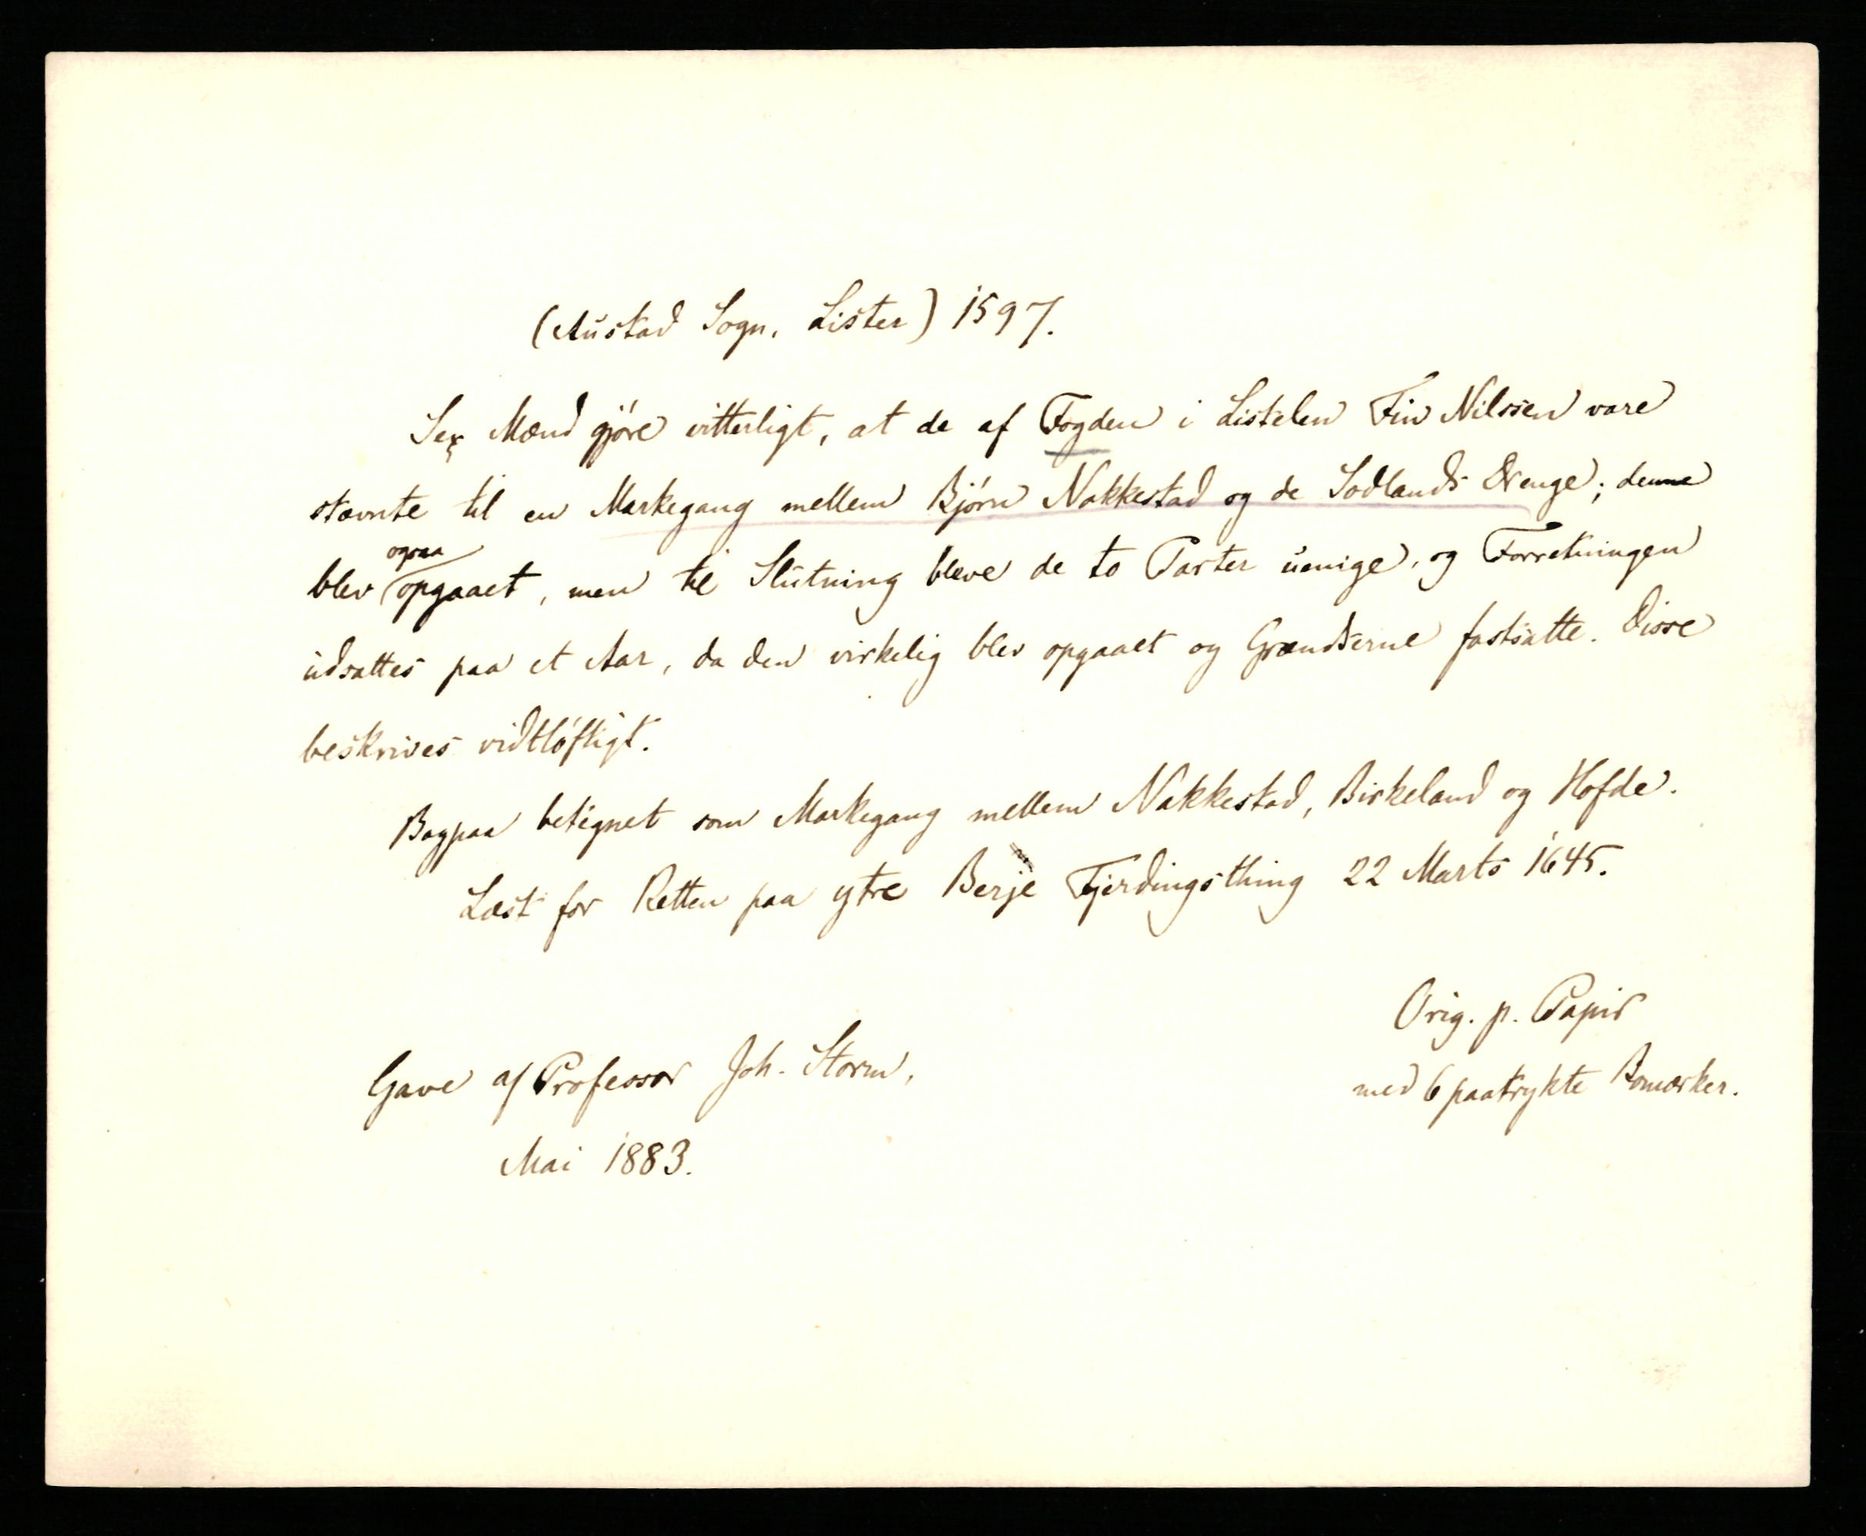 (Austad Sogn, Lister) 1597.
Sex Mænd gjöre vitterligt, at de af Fogden i Listelen Fin Nilssen vare
stævnte til en Markegang mellem Björn Nakkestad og de Sodlands Drenge; denne
blev ogsaa opgaaet, men til Slutning bleve de to Parter uenige, og Forretningen
udsattes paa et Aar, da den virkelig blev opgaaet og Grændserne fastsatte. Disse
beskrives vidtlöftigt.
Bagpaa betegnet som Markegang mellem Nakkestad, Birkeland og Hofde.
Læst for Retten paa ytre Berje Fjerdingsthing 22 Marts 1645.
Orig. p. Papir
med 6 paatrykte Bomærker.
Gave af Professor Joh. Storm,
Mai 1883.